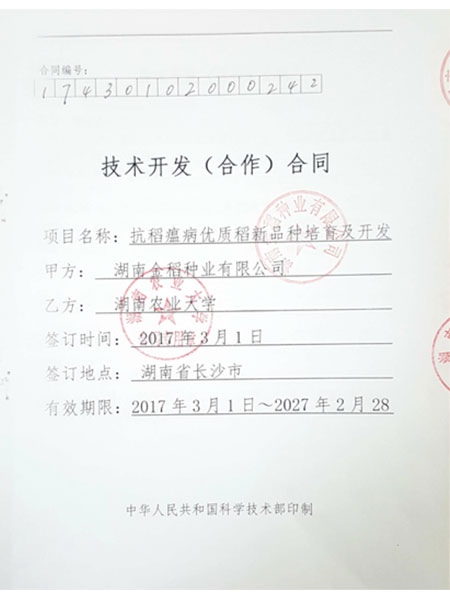 合同编号：
1743010200024 2
技术开发（合作）合同
项目名称：抗稻瘟病优质稻新品种培育及开发
甲方：湖南金稻种业有限公司
乙方：湖南农业大学
签订时间：2017年3月1日
签订地点：湖南省长沙市
有效期限：2017年3月1日～2027年2月28
中华人民共和国科学技术部印制